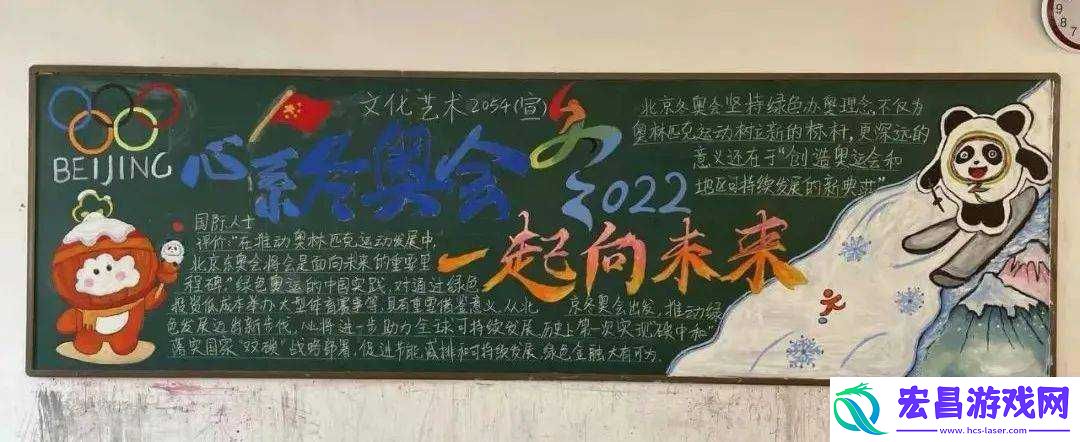 BEIJING
文化艺术2054(宣)
心系冬奥会
冬
2022
一起向未来
北京冬奥会坚持绿色办奥理念,不仅为
奥林匹克运动树立新的标杆,更深远的
意义还在于“创造奥运会和
地区可持续发展的新典范”
国际人士
评价:“在推动奥林匹克运动发展中,
北京冬奥会,将会是面向未来的重要里
程碑。”绿色奥运的中国实践,对通过绿色
投资低成本举办大型体育赛事等,具有重要借鉴意义,从北京冬奥会出发,推动绿
色发展迈出新步伐,必将进一步助力全球可持续发展,历史上第一次实现“碳中和”
落实国家“双碳”战略部署,促进节能,减排和可持续发展,绿色金融大有可为.
9
8
7
宏昌游戏网
www.hcs-laser.com